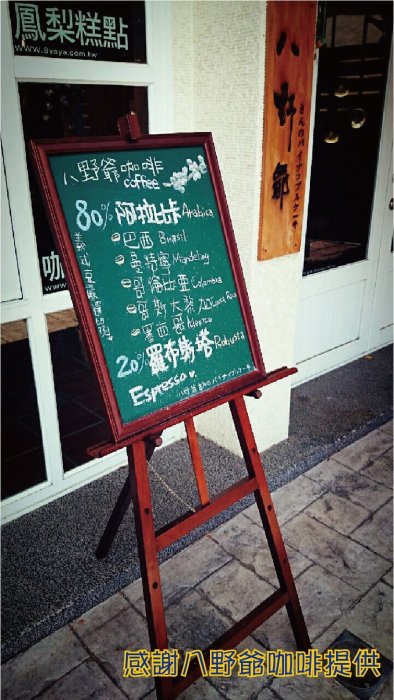 鳳梨糕點
www.8yaya.com.tw
八野爺
咖
八野爺咖啡
coffee
80% 阿拉比卡 Arabica
巴西 Brasil
曼特寧 Mandeling
哥倫比亞 Colombia
哥斯大黎加 Costa Rica
墨西哥 Mexico
20% 羅布斯塔 Robusta
Espresso
感謝八野爺咖啡提供